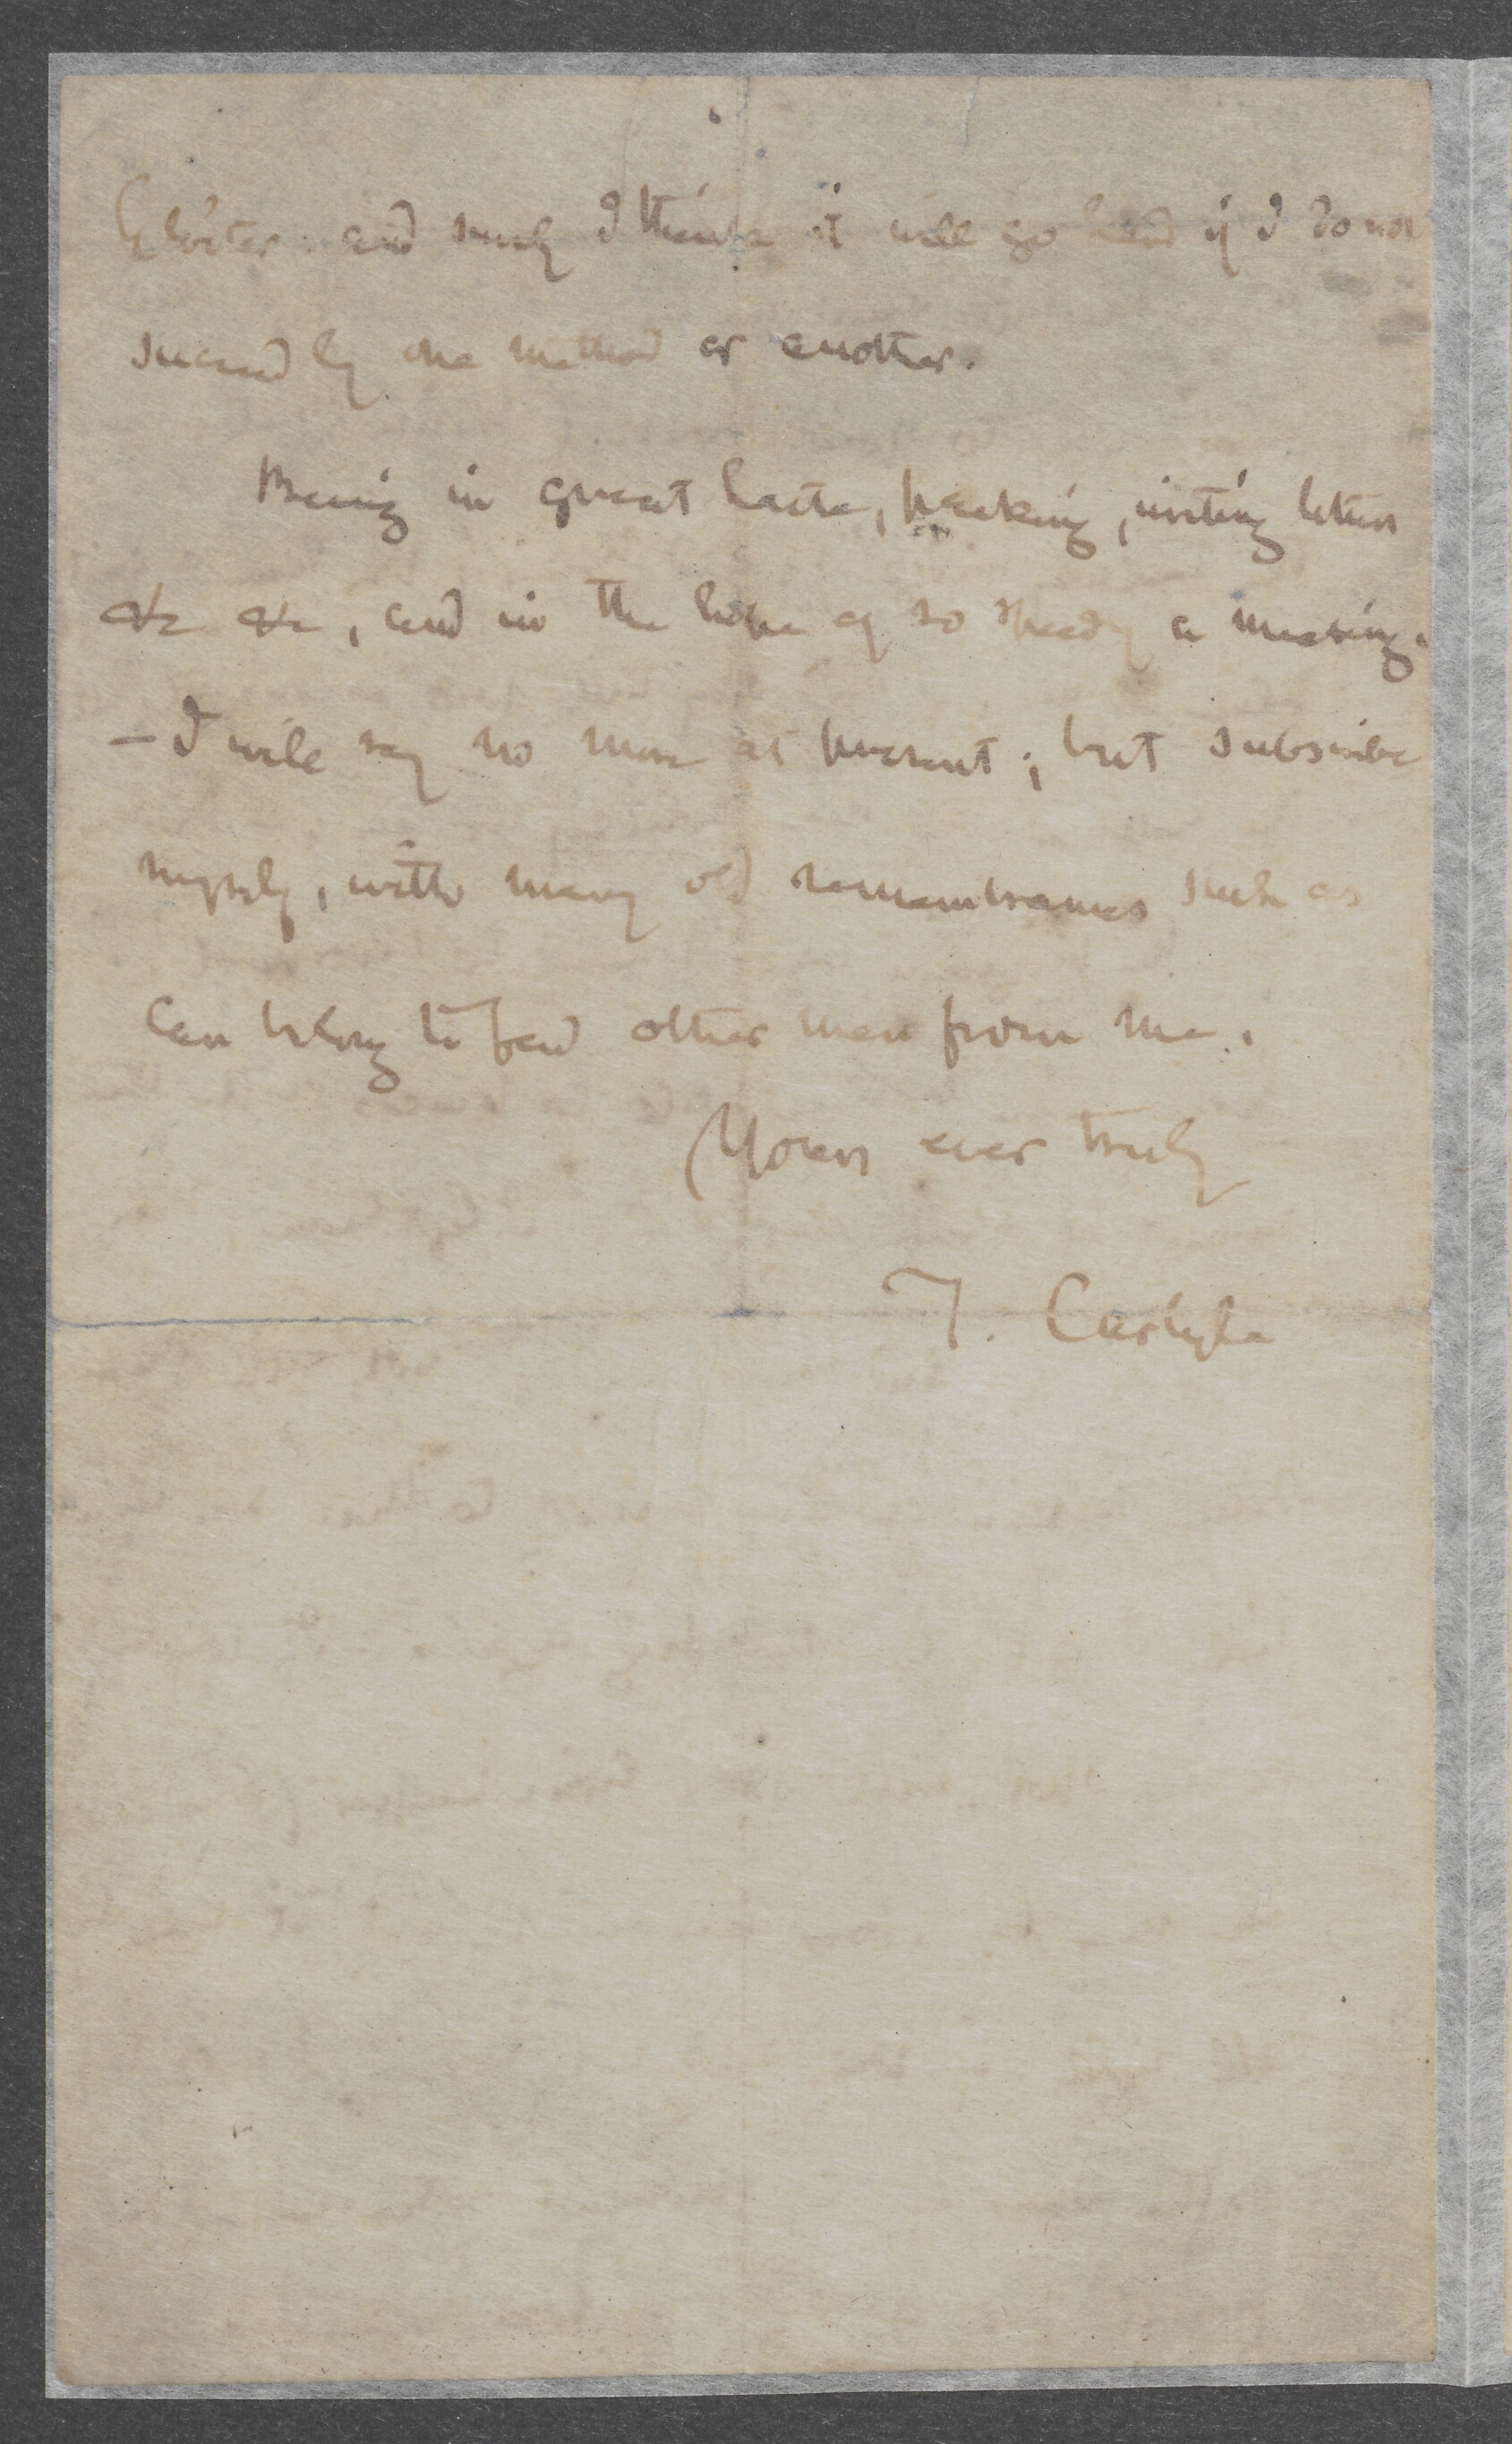 Gloster: and surely I think it will go hard if I do not
succeed by one method or another.
Being in great haste, packing, writing letters
&c &c, and in the hope of so speedy a meeting,
— I will say no more at present; but subscribe
myself, with many old remembrances such as
can belong to few other men from me.
Yours ever truly
T. Carlyle